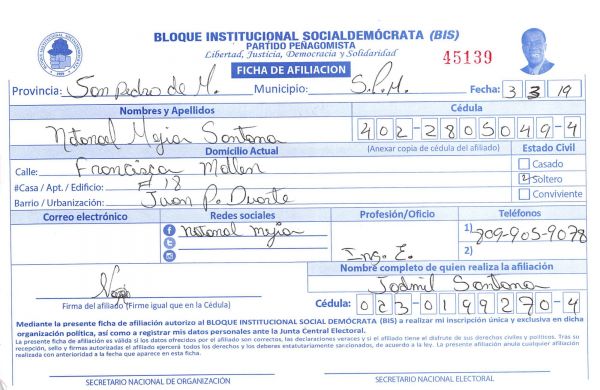 BLOQUE INSTITUCIONAL SOCIALDEMÓCRATA (BIS)
PARTIDO PEÑAGOMISTA
Libertad, Justicia, Democracia y Solidaridad
45139
FICHA DE AFILIACION
Provincia: San Pedro de M. Municipio: S.P.M. Fecha: 3 3 19
Nombres y Apellidos Cédula
Natanael Mejia Santana 402-2805049-4
Domicilio Actual (Anexar copia de cédula del afiliado) Estado Civil
Calle: Francisca Mollen Casado
#Casa / Apt. / Edificio: # 18 Soltero
Barrio / Urbanización: Juan P. Duarte Conviviente
Correo electrónico Redes sociales Profesión/Oficio Teléfonos
natanael mejia Ing. E. 1) 809-905-9078
2)
Nombre completo de quien realiza la afiliación
Jadmil Santana
Firma del afiliado (Firme igual que en la Cédula) Cédula: 023-0199270-4
Mediante la presente ficha de afiliación autorizo al BLOQUE INSTITUCIONAL SOCIAL DEMÓCRATA (BIS) a realizar mi inscripción única y exclusiva en dicha
organización política, así como a registrar mis datos personales ante la Junta Central Electoral.
La presente ficha de afiliación es válida si los datos ofrecidos por el afiliado son correctos, las declaraciones veraces y si el afiliado tiene el disfrute de sus derechos civiles y políticos. Tras su
recepción, sello y firmas autorizadas el afiliado ejercerá todos los derechos y los deberes estatutariamente sancionados, de acuerdo a la ley. La presente afiliación anula cualquier afiliación
realizada con anterioridad a la fecha que aparece en esta ficha.
SECRETARIO NACIONAL DE ORGANIZACIÓN SECRETARIO NACIONAL ELECTORAL